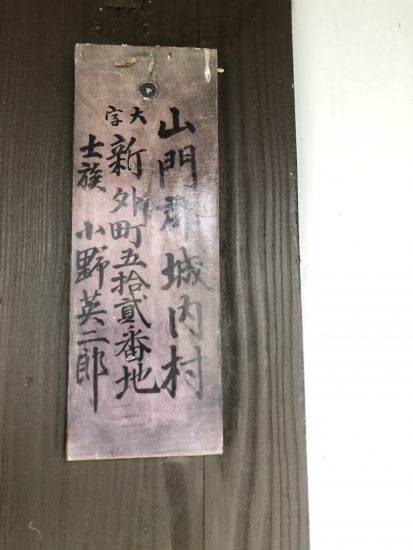 山門郡城内村
大字新外町五拾貳番地
士族 小野英二郎